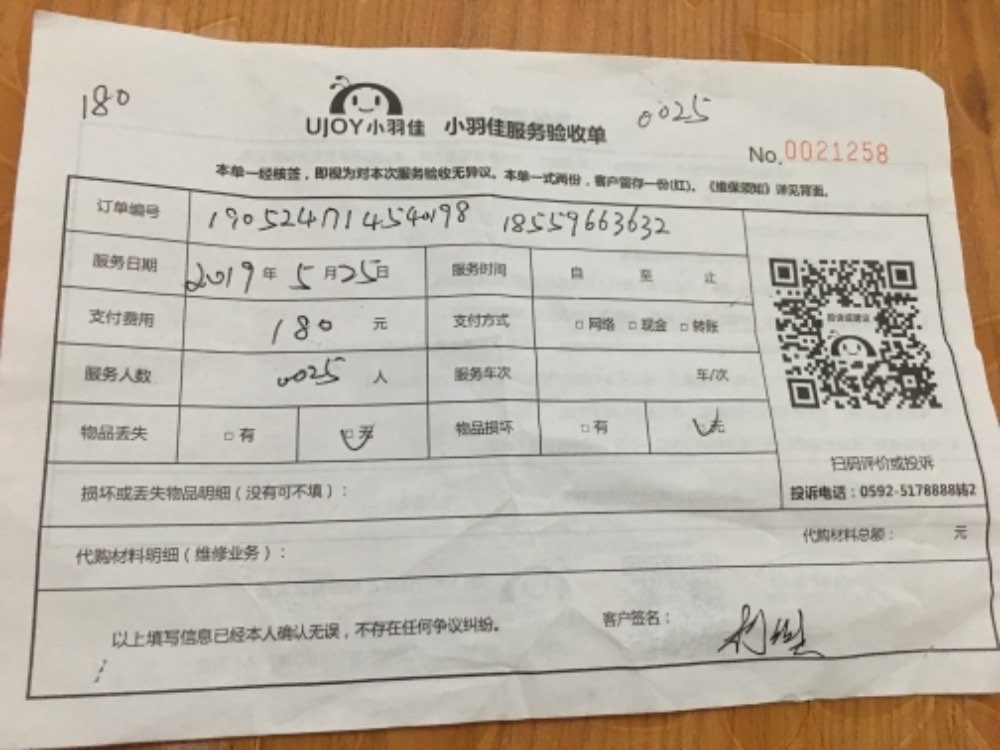 180
0025
UJOY小羽佳 小羽佳服务验收单
No.0021258
本单一经核签，即视为对本次服务验收无异议。本单一式两份，客户留存一份(红)。《维保须知》详见背面。
订单编号 1905241714540198 18559663632
服务日期 2019年5月25日 服务时间 自 至 止
支付费用 180 元 支付方式 □网络 □现金 □转账
服务人数 0025 人 服务车次 车/次
物品丢失 □有 □无 物品损坏 □有 □无
投诉或建议
扫码评价或投诉
投诉电话：0592-5178888转2
损坏或丢失物品明细（没有可不填）：
代购材料明细（维修业务）： 代购材料总额： 元
以上填写信息已经本人确认无误，不存在任何争议纠纷。 客户签名：